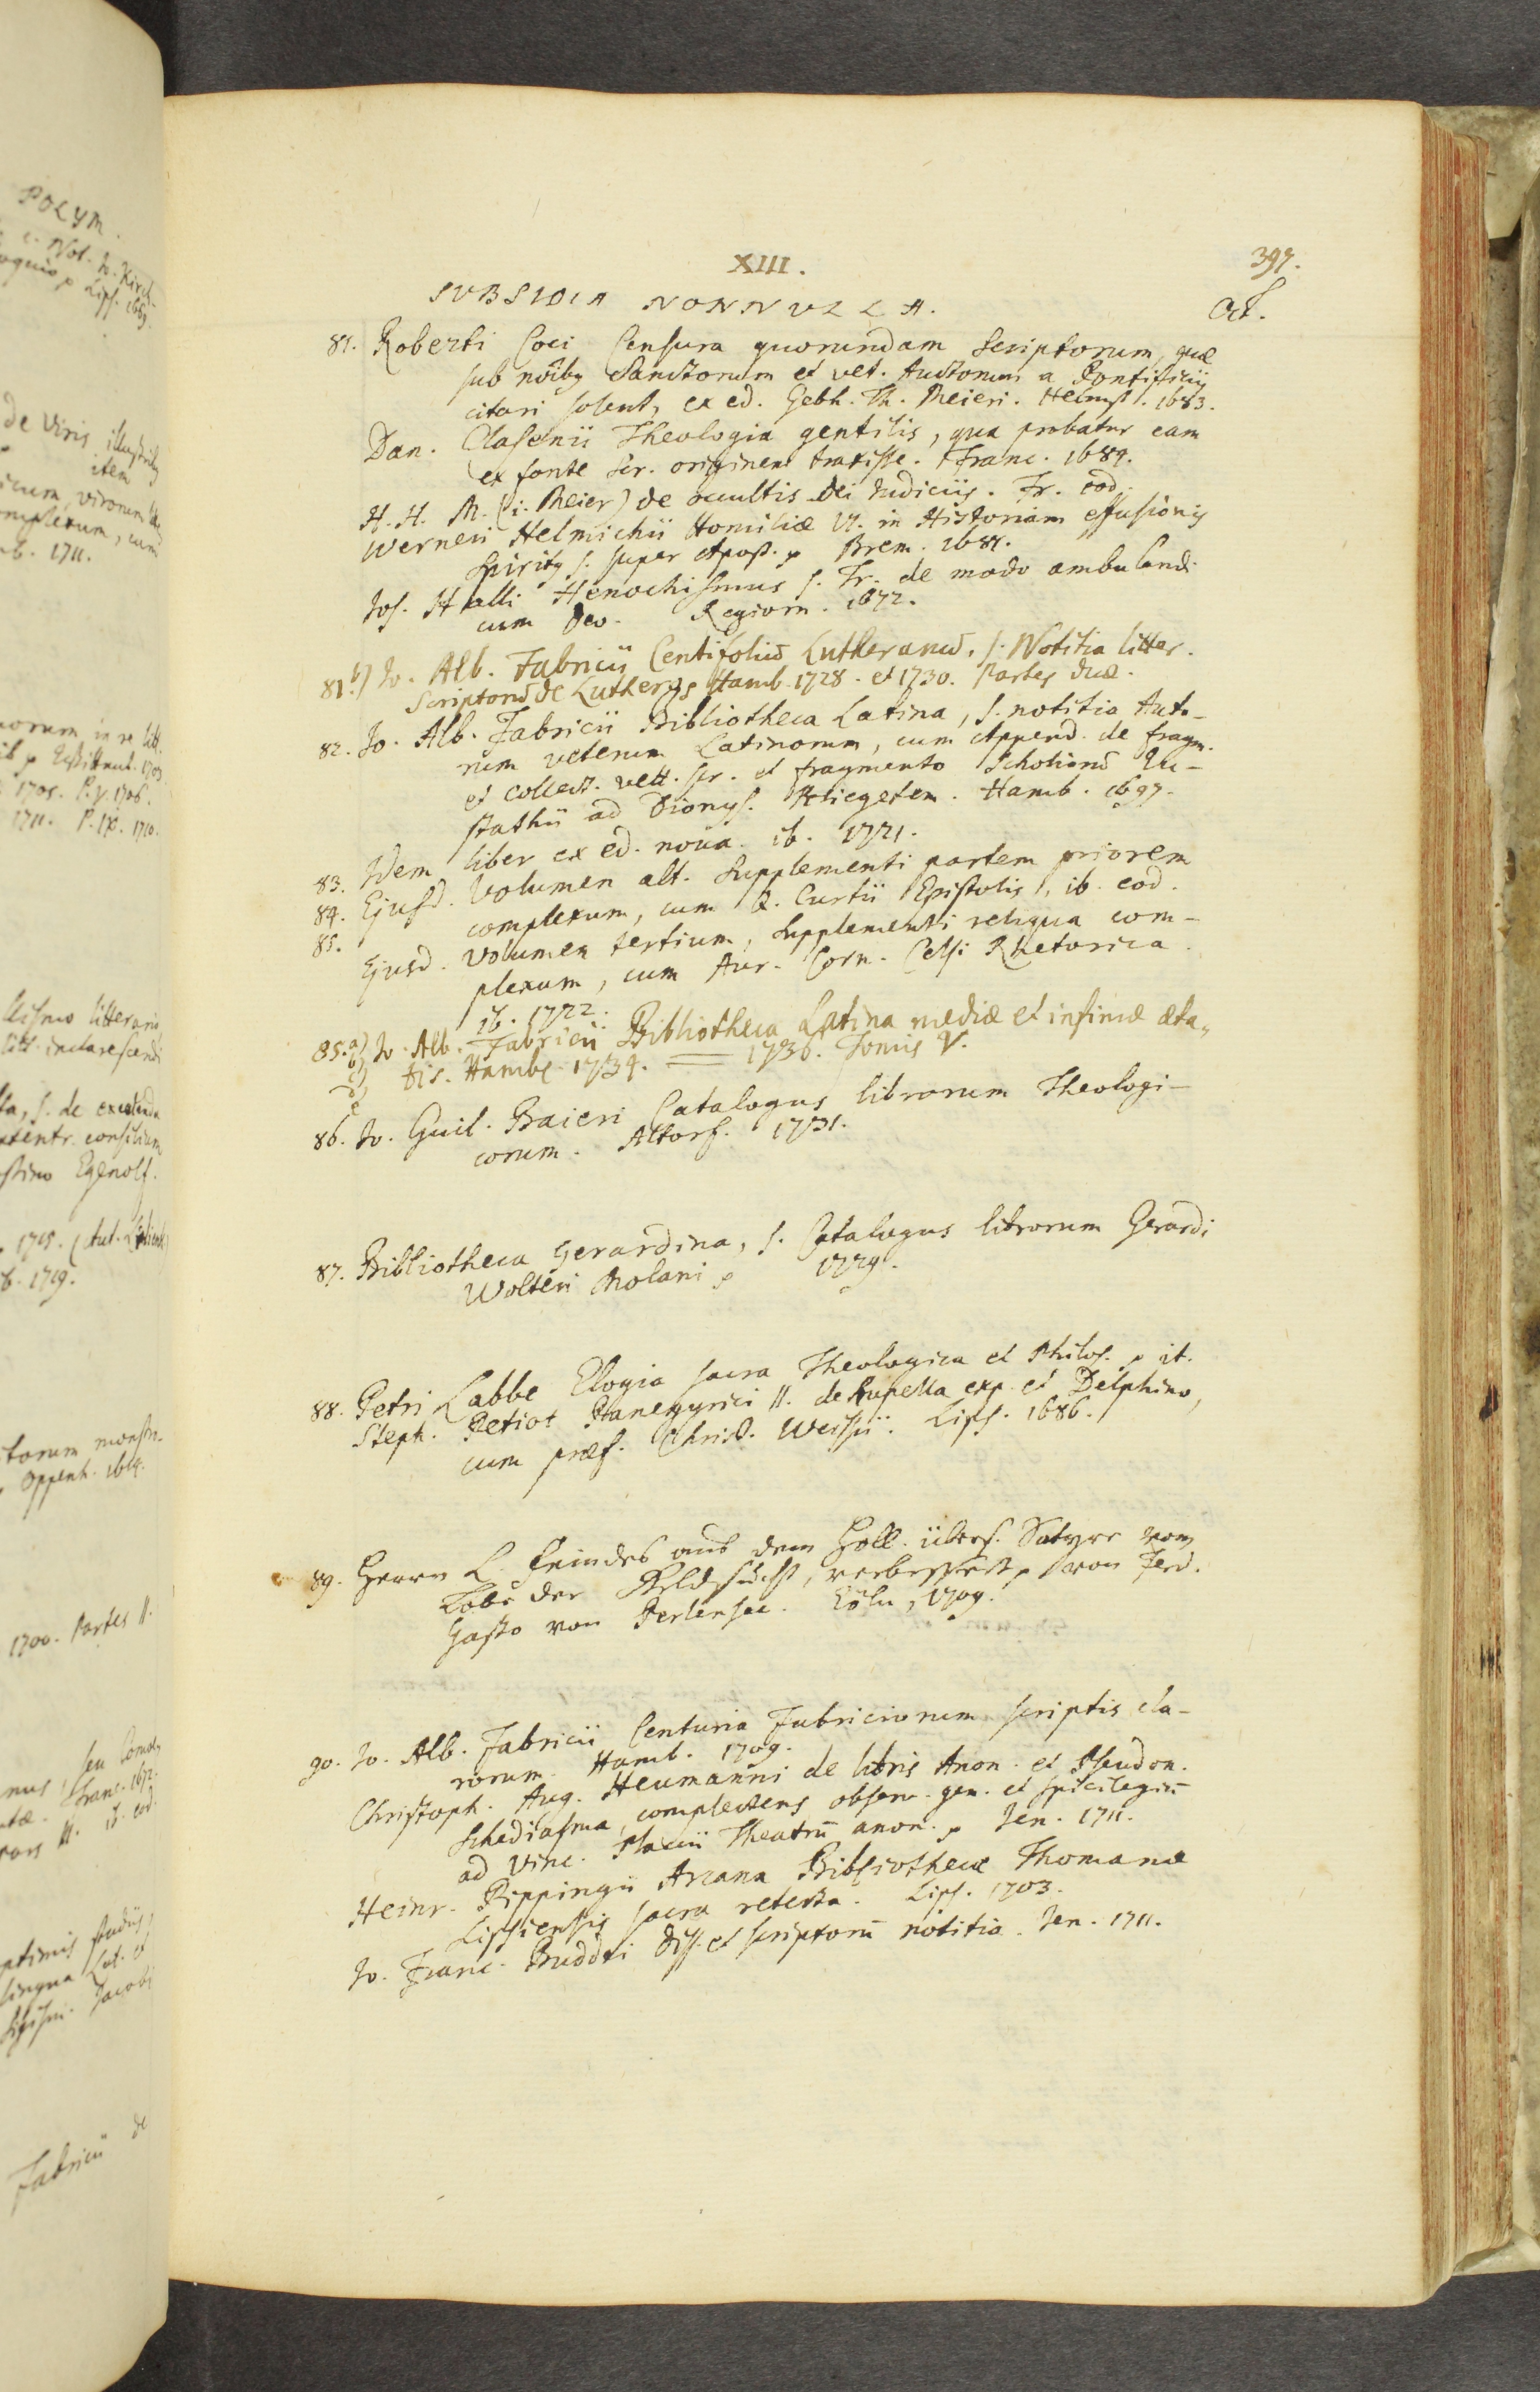 POLYM.
XIII. 397.
SUBSIDIA NONNULLA. Oct.
81. Roberti Coci Censura quorundam Scriptorum, quæ
sub noibq Sanctorum et vet. Auctorum a Pontificiis
citari solent, ex ed. Gebh. Th. Meieri. Helmst. 1683.
Dan. Clasenii Theologia gentilis, qua probatur eam
ex fonte Scr. originem traxisse. Franc. 1684.
H. H. M. (i. Meier) de occultis Dei Iudiciis. Fr. eod.
Werneri Helmichii Homiliæ VI. in Historiam effusionis
Spiritq S. super Apost. p Brem. 1681.
Jos. Halli Henochismus s. Tr. de modo ambulandi
cum Deo. Regiom. 1672.
81.b) Jo. Alb. Fabricii Centifoliū Lutheranū, s. Notitia litter.
Scriptorū de Luthero, Hamb. 1728. et 1730. Partes duæ.
82. Jo. Alb. Fabricii Bibliotheca Latina, s. notitia Auto-
rum veterum Latinorum, cum Append. de fragm.
et collect. vett. scr. et fragmento Scholiorū Eu-
stathii ad Dionys. Periegetem. Hamb. 1697.
83. Idem liber ex ed. noua. ib. 1721.
84. Ejusd. Volumen alt. Supplementi partem priorem
complexum, cum Q. Curtii Epistolis, ib. eod.
85. Ejusd. Volumen tertium, Supplementi reliqua com-
plexum, cum Aur. Corn. Celsi Rhetorica.
ib. 1722.
85.a) Jo. Alb. Fabricii Bibliotheca Latina mediæ et infimæ æta-
b) tis. Hambg 1734. = 1736. Tomis V.
c)
d)
e
86. Jo. Guil. Baieri Catalogus librorum Theologi-
corum. Altorf. 1731.
87. Bibliotheca Gerardina, s. Catalogus librorum Gerardi
Wolteri Molani p 1729.
88. Petri Labbe Elogia sacra Theologica et Philos. p it.
Steph. Petiot Panegyrici II. de Rupella exp. et Delphino,
cum præf. Christ. Weisii. Lips. 1686.
89. Herrn L. Feindes aus dem Holl. übers. Satyre vom
Lobe der Geldsucht, verbessert p von Ferd.
Gasto von Perlensee. Cöln, 1709.
90. Jo. Alb. Fabricii Centuria Fabriciorum scriptis cla-
rorum. Hamb. 1709.
Christoph. Aug. Heumanni de libris Anon. et Pseudon.
Schediasma, complectens observ. gen. et spicilegiū
ad Vinc. Placcii Theatrū anon. p Jen. 1711.
Heinr. Pippingii Arcana Bibliothecæ Thomanæ
Lipsiensis sacra retecta. Lips. 1703.
Jo. Franc. Buddei Diss. et scriptorū notitia. Jen. 1711.